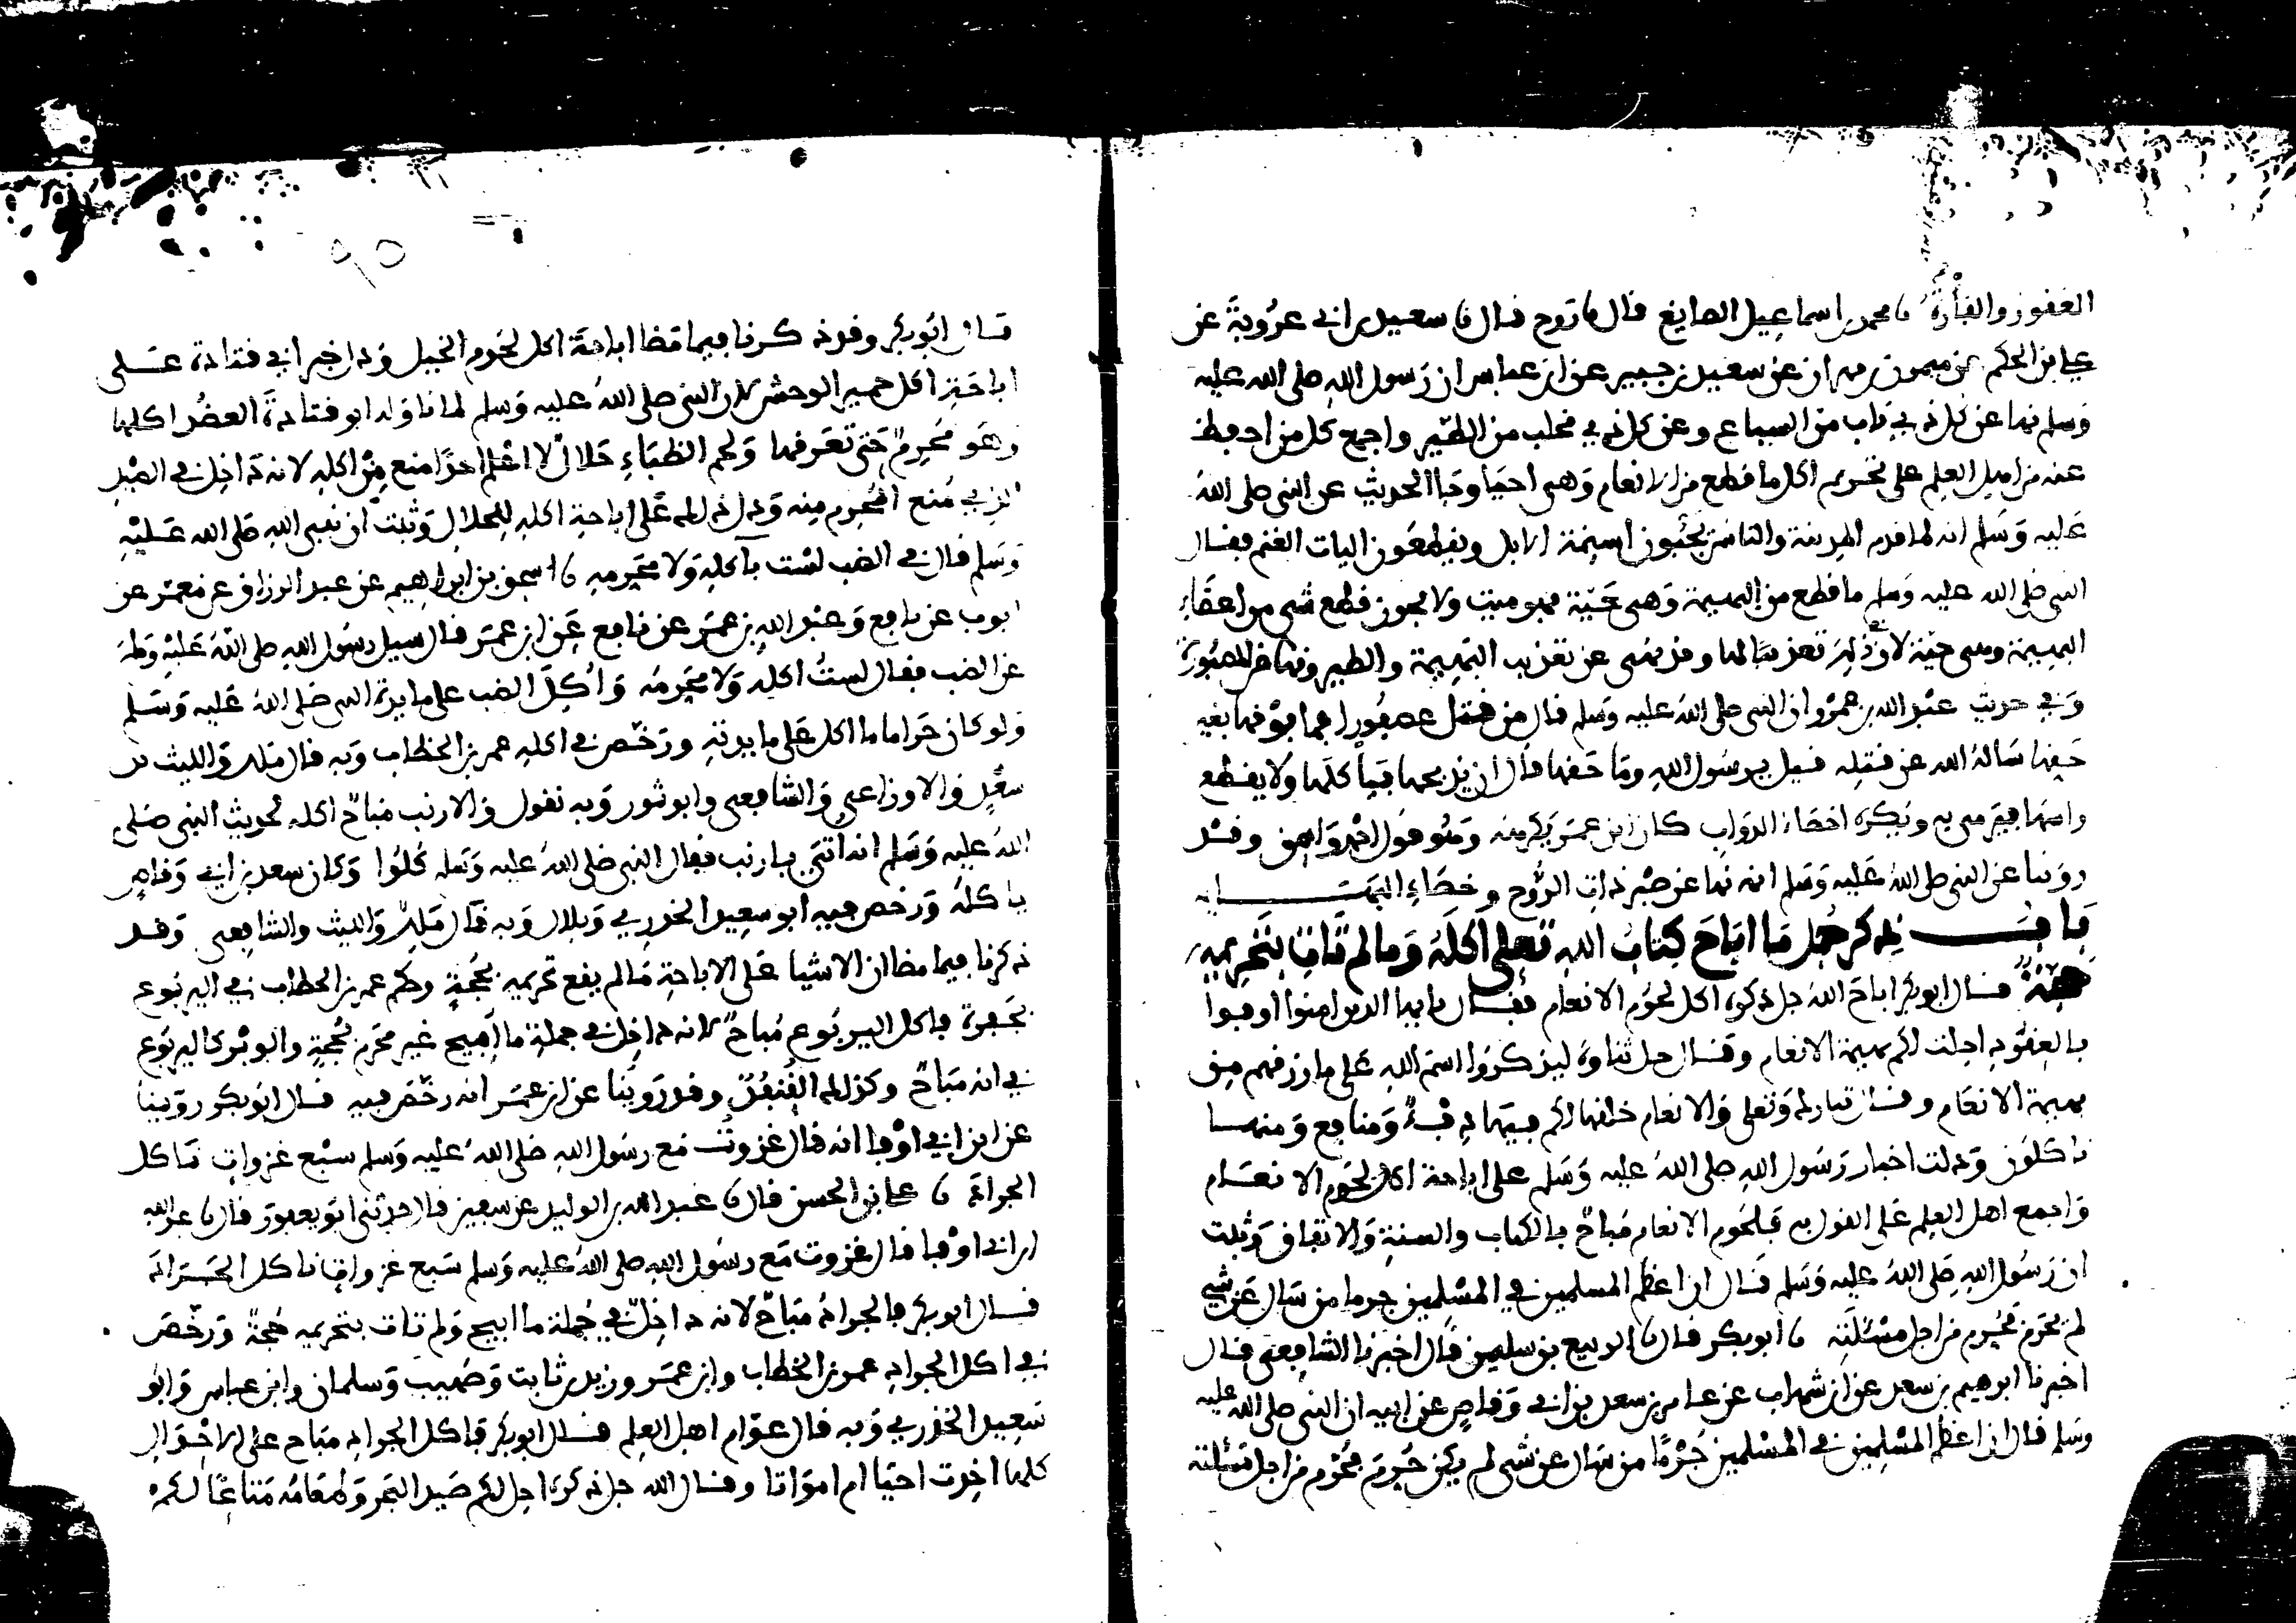 العقور والفأرة نا محمد بن اسماعيل الصايغ قال نا روح قال نا سعيد بن ابي عروبة عن
علي بن الحكم عن ميمون بن مهران عن سعيد بن جبير عن ابن عباس ان رسول الله صلى الله عليه
وسلم نها عن كل ذي ناب من السباع وعن كل ذي مخلب من الطير واجمع كل من احفظ
عنه من اهل العلم على تحريم اكل ما قطع من الانعام وهي احيا وجا الحديث عن النبي صلى الله
عليه وسلم انه لما قدم المدينة والناس يجبون اسنمة الابل ويقطعون اليات الغنم فقال
النبي صلى الله عليه وسلم ما قطع من البهيمة وهي حية فهو ميت ولا يجوز قطع شي من اعضاء
البهيمة وهي حية لان في ذلك تعذيبا لها وقد نهي عن تعذيب البهيمة والطير ونها عن المصبورة
وفي حديث عبد الله بن عمرو ان النبي صلى الله عليه وسلم قال من قتل عصفورا فما فوقها بغير
حقها ساله الله عن قتله قيل يرسول الله وما حقها قال ان يذبحها فيأكلها ولا يقطع
راسها فيرمي به ويكره اخصاء الدواب كان ابن عمر يكرهه وهو قول احمد واسحق وقد
روينا عن النبي صلى الله عليه وسلم انه نها عن صبر ذات الروح وخصاء البهايم
باب ذكر جمل ما اباح كتاب الله تعلى اكله وما لم تات بتحريمه
حجة قال ابو بكر اباح الله جل ذكره اكل لحوم الانعام فقال يايها الذين امنوا اوفوا
بالعقود احلت لكم بهيمة الانعام وقال جل ثناؤه ليذكروا اسم الله على ما رزقهم من
بهيمة الانعام وقال تبارك وتعلى والانعام خلقها لكم فيها دفء ومنافع ومنها
تاكلون ودلت اخبار رسول الله صلى الله عليه وسلم على اباحة اكل لحوم الانعام
واجمع اهل العلم على القول به فلحوم الانعام مباح بالكتاب والسنة والاتفاق وثبت
ان رسول الله صلى الله عليه وسلم قال ان اعظم المسلمين في المسلمين جرما من سال عن شي
لم يحرم فحرم من اجل مسئلته نا ابو بكر قال نا الربيع بن سليمن قال اخبرنا الشافعي قال
اخبرنا ابرهيم بن سعد عن ابن شهاب عن عامر بن سعد بن ابي وقاص عن ابيه ان النبي صلى الله عليه
وسلم قال ان اعظم المسلمين في المسلمين جرما من سال عن شي لم يكن حرم فحرم من اجل مسئلته
٩٥
قال ابو بكر وقد ذكرنا فيما مضا اباحة اكل لحوم الخيل ودل خبر ابي قتادة على
اباحة اكل حمير الوحش لان النبي صلى الله عليه وسلم لما ناوله ابو قتادة العضد اكلها
وهو محرم حتى تعرقها ولحم الظباء حلال لا اعلم احدا منع من اكله لانه داخل في الصيد
الذي منع المحرم منه ودل ذلك على اباحة اكله للحلال وثبت ان نبي الله صلى الله عليه
وسلم قال في الضب لست باكله ولا محرمه نا اسحق بن ابراهيم عن عبد الرزاق عن معمر عن
ايوب عن نافع وعبد الله بن عمر عن نافع عن ابن عمر قال سيل رسول الله صلى الله عليه وسلم
عن الضب فقال لست اكله ولا محرمه واكل الضب على مايدة النبي صلى الله عليه وسلم
ولو كان حراما ما اكل على مايدته ورخص في اكله عمر بن الخطاب وبه قال ملك والليث بن
سعد والاوزاعي والشافعي وابو ثور وبه نقول والارنب مباح اكله لحديث النبي صلى
الله عليه وسلم انه اتي بارنب فقال النبي صلى الله عليه وسلم كلوا وكان سعد بن ابي وقاص
ياكله ورخص فيه ابو سعيد الخدري وبلال وبه قال ملك والليث والشافعي وقد
ذكرنا فيما مضا ان الاشيا على الاباحة ما لم يقع تحريمه بحجة وحكم عمر بن الخطاب في اليربوع
بجفرة فاكل اليربوع مباح لانه داخل في جملة ما ابيح غير محرم بحجة والوبر كاليربوع
في انه مباح وكذلك القنفذ وقد روينا عن ابن عمر انه رخص فيه قال ابو بكر روينا
عن ابن ابي اوفا انه قال غزوت مع رسول الله صلى الله عليه وسلم سبع غزوات ناكل
الجراد نا علي بن الحسن قال نا عبد الله بن الوليد عن سفين قال حدثني ابو يعفور قال نا عبد الله
ابن ابي اوفا قال غزوت مع رسول الله صلى الله عليه وسلم سبع غزوات ناكل الجراد
قال ابو بكر فالجراد مباح لانه داخل في جملة ما ابيح ولم تات بتحريمه حجة ورخص
في اكل الجراد عمر بن الخطاب وابن عمر وزيد بن ثابت وصهيب وسلمان وابن عباس وابو
سعيد الخدري وبه قال عوام اهل العلم قال ابو بكر فاكل الجراد مباح على الاحوال
كلها اخذت احيا ام امواتا وقال الله جل ذكره احل لكم صيد البحر وطعامه متاعا لكم